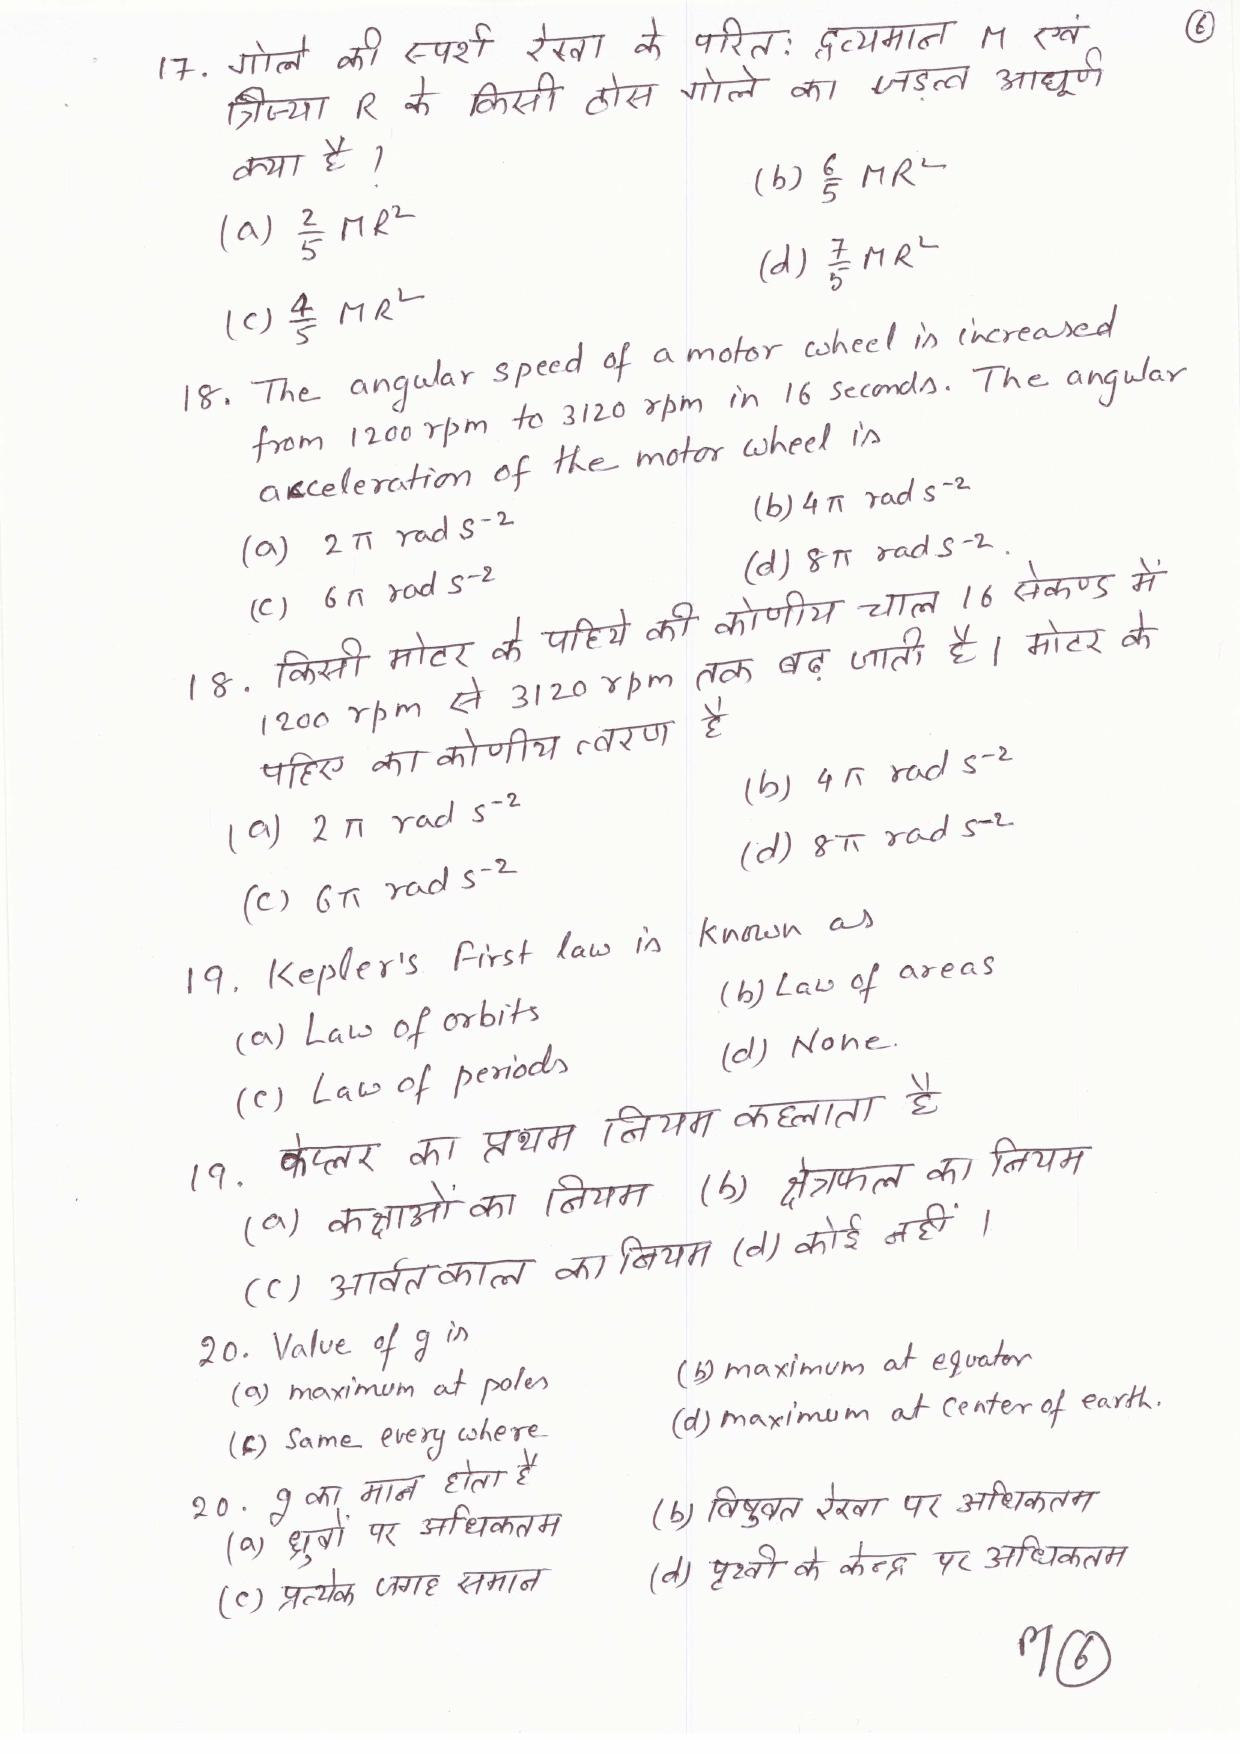 6
17. गोले की स्पर्श रेखा के परितः द्रव्यमान M एवं
त्रिज्या R के किसी ठोस गोले का जड़त्व आघूर्ण
क्या है ?
(a) 2/5 MR² (b) 6/5 MR²
(c) 4/5 MR² (d) 7/5 MR²
18. The angular speed of a motor wheel is increased
from 1200 rpm to 3120 rpm in 16 seconds. The angular
acceleration of the motor wheel is
(a) 2π rad s⁻² (b) 4π rad s⁻²
(c) 6π rad s⁻² (d) 8π rad s⁻².
18. किसी मोटर के पहिये की कोणीय चाल 16 सेकण्ड में
1200 rpm से 3120 rpm तक बढ़ जाती है। मोटर के
पहिए का कोणीय त्वरण है
(a) 2π rad s⁻² (b) 4π rad s⁻²
(c) 6π rad s⁻² (d) 8π rad s⁻²
19. Kepler's first law is known as
(a) Law of orbits (b) Law of areas
(c) Law of periods (d) None.
19. केप्लर का प्रथम नियम कहलाता है
(a) कक्षाओं का नियम (b) क्षेत्रफल का नियम
(c) आर्वतकाल का नियम (d) कोई नहीं ।
20. Value of g is
(a) maximum at poles (b) maximum at equator
(c) Same every where (d) maximum at center of earth.
20. g का मान होता है
(a) ध्रुवों पर अधिकतम (b) विषुवत रेखा पर अधिकतम
(c) प्रत्येक जगह समान (d) पृथ्वी के केन्द्र पर अधिकतम
M 6